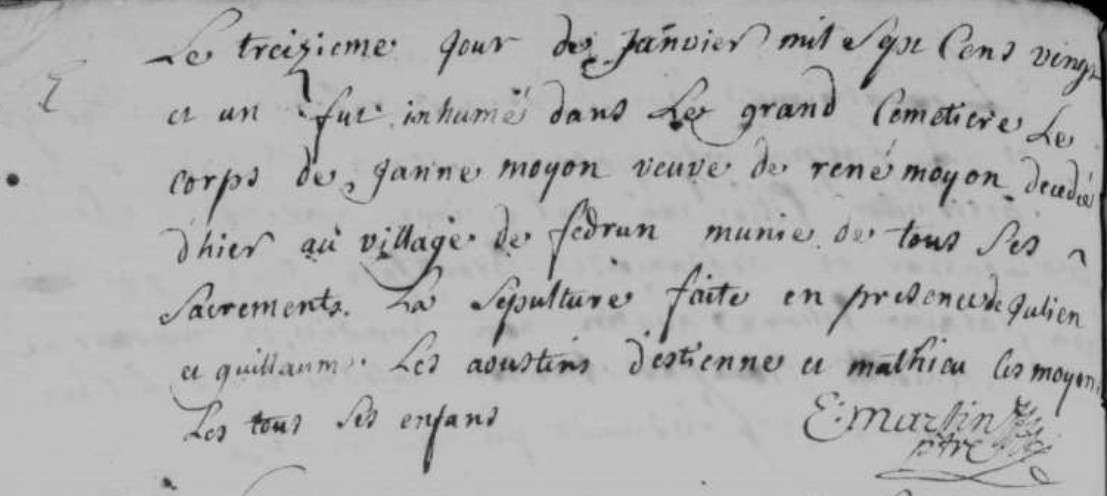 Le treizieme jour de Janvier mil sept Cens vingt
et un fut inhumé dans Le grand Cemetiere Le
corps de Janne moyon veuve de rené moyon decedée
d'hier au village de fedrun munie de tous Ses
Sacrements. La Sepulture faite en presence de Julien
et guillaume Les aoustins d'estienne et mathieu les moyons
Les tous Ses enfans
E: Martin
ptre